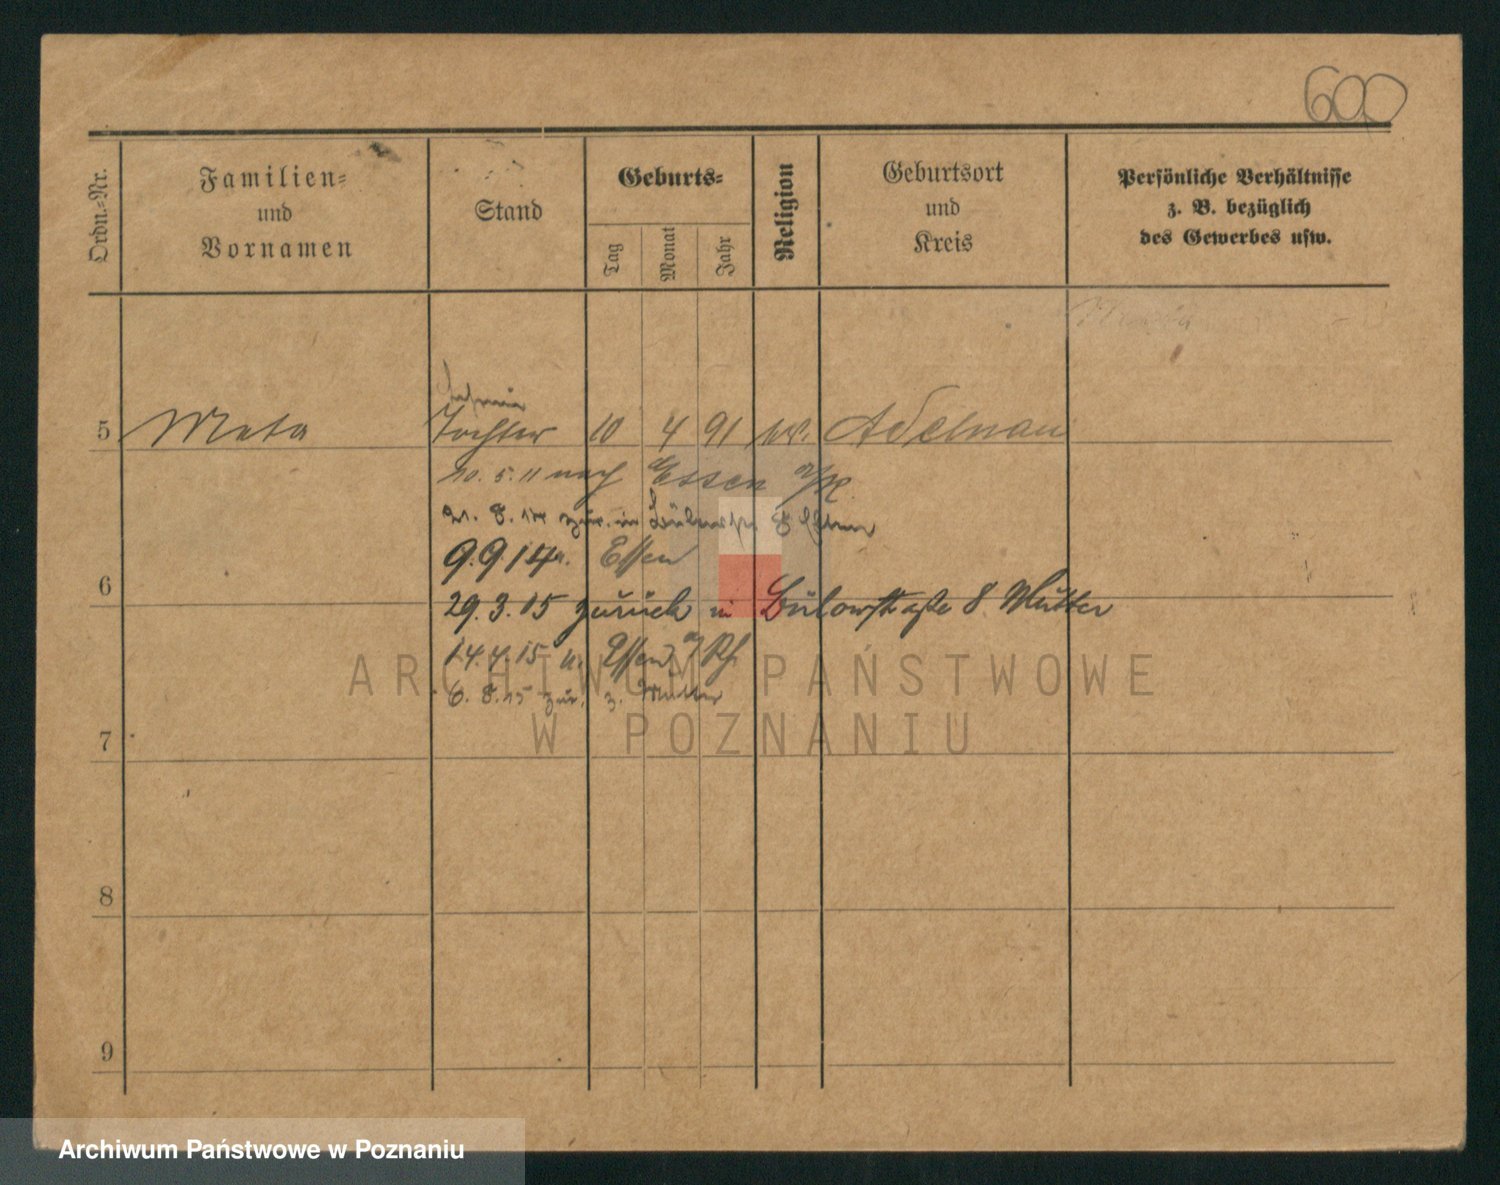 600
Ordn.-Nr.
Familien-
und
Vornamen
Stand
Geburts-
Tag
Monat
Jahr
Religion
Geburtsort
und
Kreis
Persönliche Verhältnisse
z. B. bezüglich
des Gewerbes usw.
5 Meta Tochter 10 4 91 Adelnau
20. 5. 11 nach Essen a/R.
8. 14 zur. in Bülowstr 8
9. 9 14 n. Essen
6
29. 3. 15 zurück in Bülowstraße 8 Mutter
14. 4. 15 n. Essen a/Rh.
6. 8. 15 zur. z. Mutter
7
8
9
ARCHIWUM PAŃSTWOWE
W POZNANIU
Archiwum Państwowe w Poznaniu